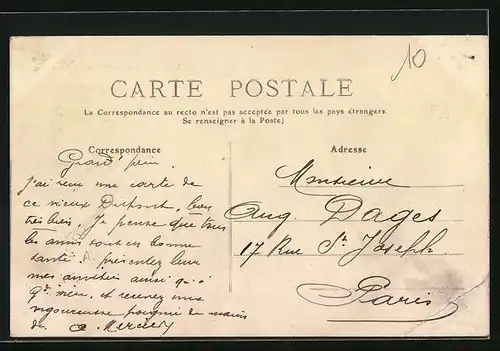 10
CARTE POSTALE
La Correspondance au recto n'est pas acceptée par tous les pays étrangers.
Se renseigner à la Poste)
Correspondance
J'ai reçu une carte de
ce vieux Dufont,
très bien. Je pense que tous
les amis sont en bonne
santé. présentez leur
mes amitiés ainsi qu'à
et recevez une
vigoureuse poignée de mains
de
Adresse
Monsieur
Aug. Dages
17 Rue St. Joseph
Paris